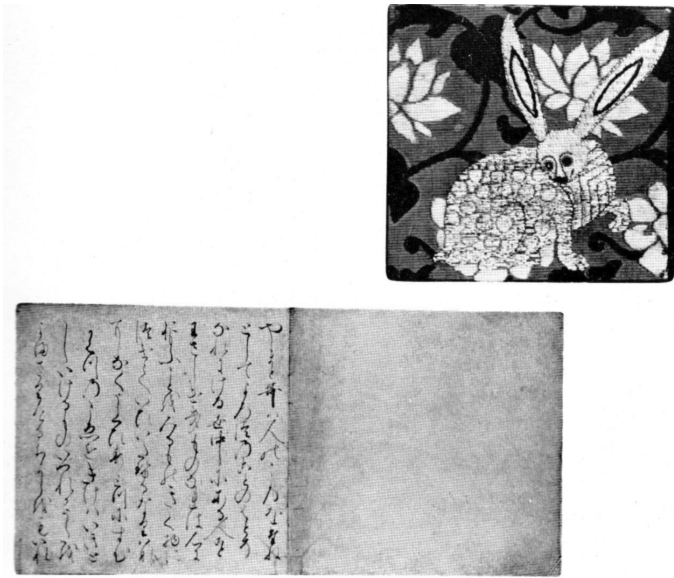 やまと哥は人の心をたね
としてよろつのことのはとそ
なれりける世中にある人こと
わさしけきものなれは心に
おもふことを見るものきくもの
につけていひいたせるなり花
になくうくひす水にすむ
かはつのこゑをきけはいきと
しいけるものいつれかうたを
よまさりけるちからをもいれ